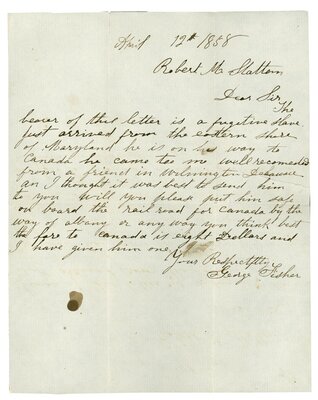 April 12th 1858
Robert M Stattom
Dear Sir
The
bearer of this letter is a fugitive slave
just arrived from the eastern shore
of Maryland he is on his way to
Canada he came too me well recomended
from a friend in Wilmington Delaware
an I thought it was best to send him
to you will you please put him safe
on board the rail road for Canada by the
way of albany or any way you think best
the fare to Canada is eight Dollars and
I have given him one
Your Respectfuly
George Fisher